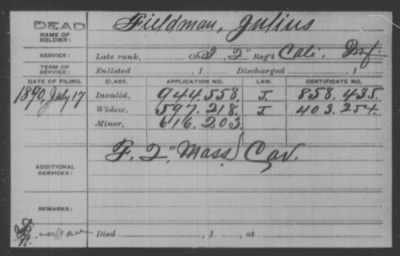 DEAD
NAME OF SOLDIER: Fieldman, Julius
SERVICE: Late rank, Co I, 2" Reg't Cali. Inf.
TERM OF SERVICE: Enlisted , 1 Discharged , 1
DATE OF FILING. APPLICATION NO. LAW. CERTIFICATE NO.
1890, July 17 Invalid, 944.558. J. 858.435.
Widow, 597.218. J 403.254.
Minor, 616.203
ADDITIONAL SERVICES: F. 2" Mass Cav.
REMARKS:
Died , 1 , at